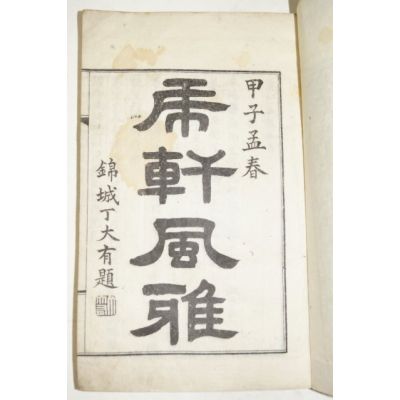 甲子孟春
軒風雅
錦城丁大有題